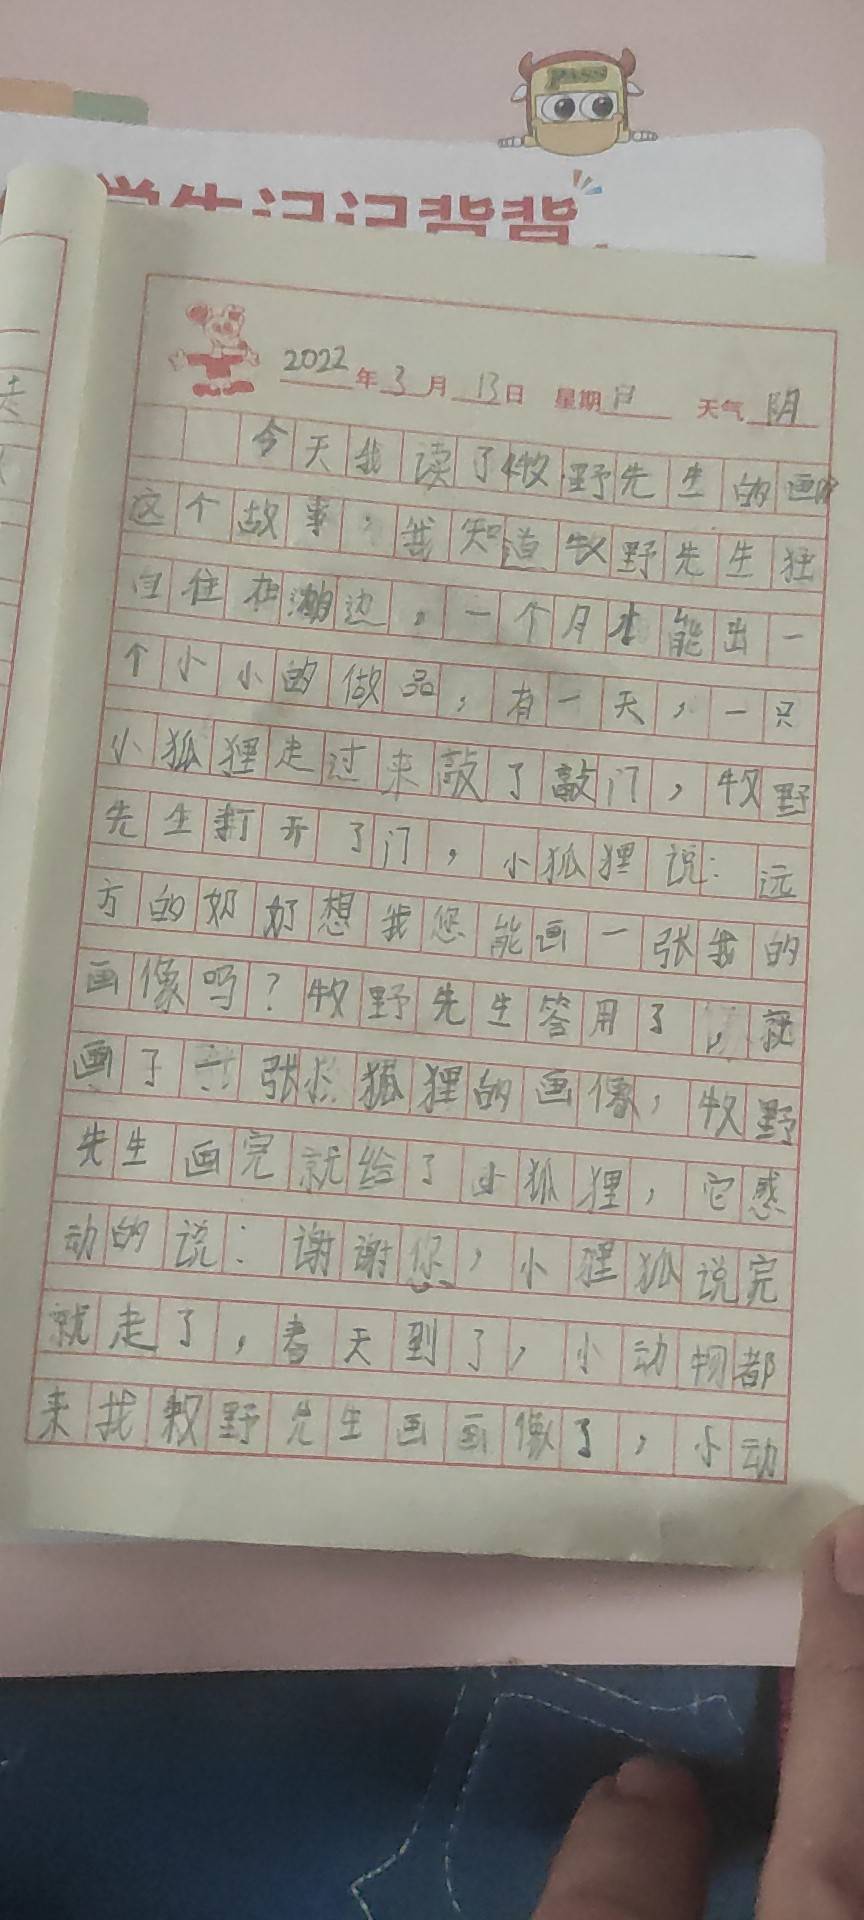 PASS
学生记记背背
2022年3月13日 星期日 天气阴
今天我读了牧野先生的画
这个故事,我知道牧野先生独
自住在湖边。一个月才能出一
个小小的做品,有一天,一只
小狐狸走过来敲了敲门,牧野
先生打开了门,小狐狸说:远
方的奶奶想我您能画一张我的
画像吗?牧野先生答用了,就
画了一张小狐狸的画像,牧野
先生画完就给了小狐狸,它感
动的说:谢谢您,小狸狐说完
就走了,春天到了,小动物都
来找牧野先生画画像了,小动